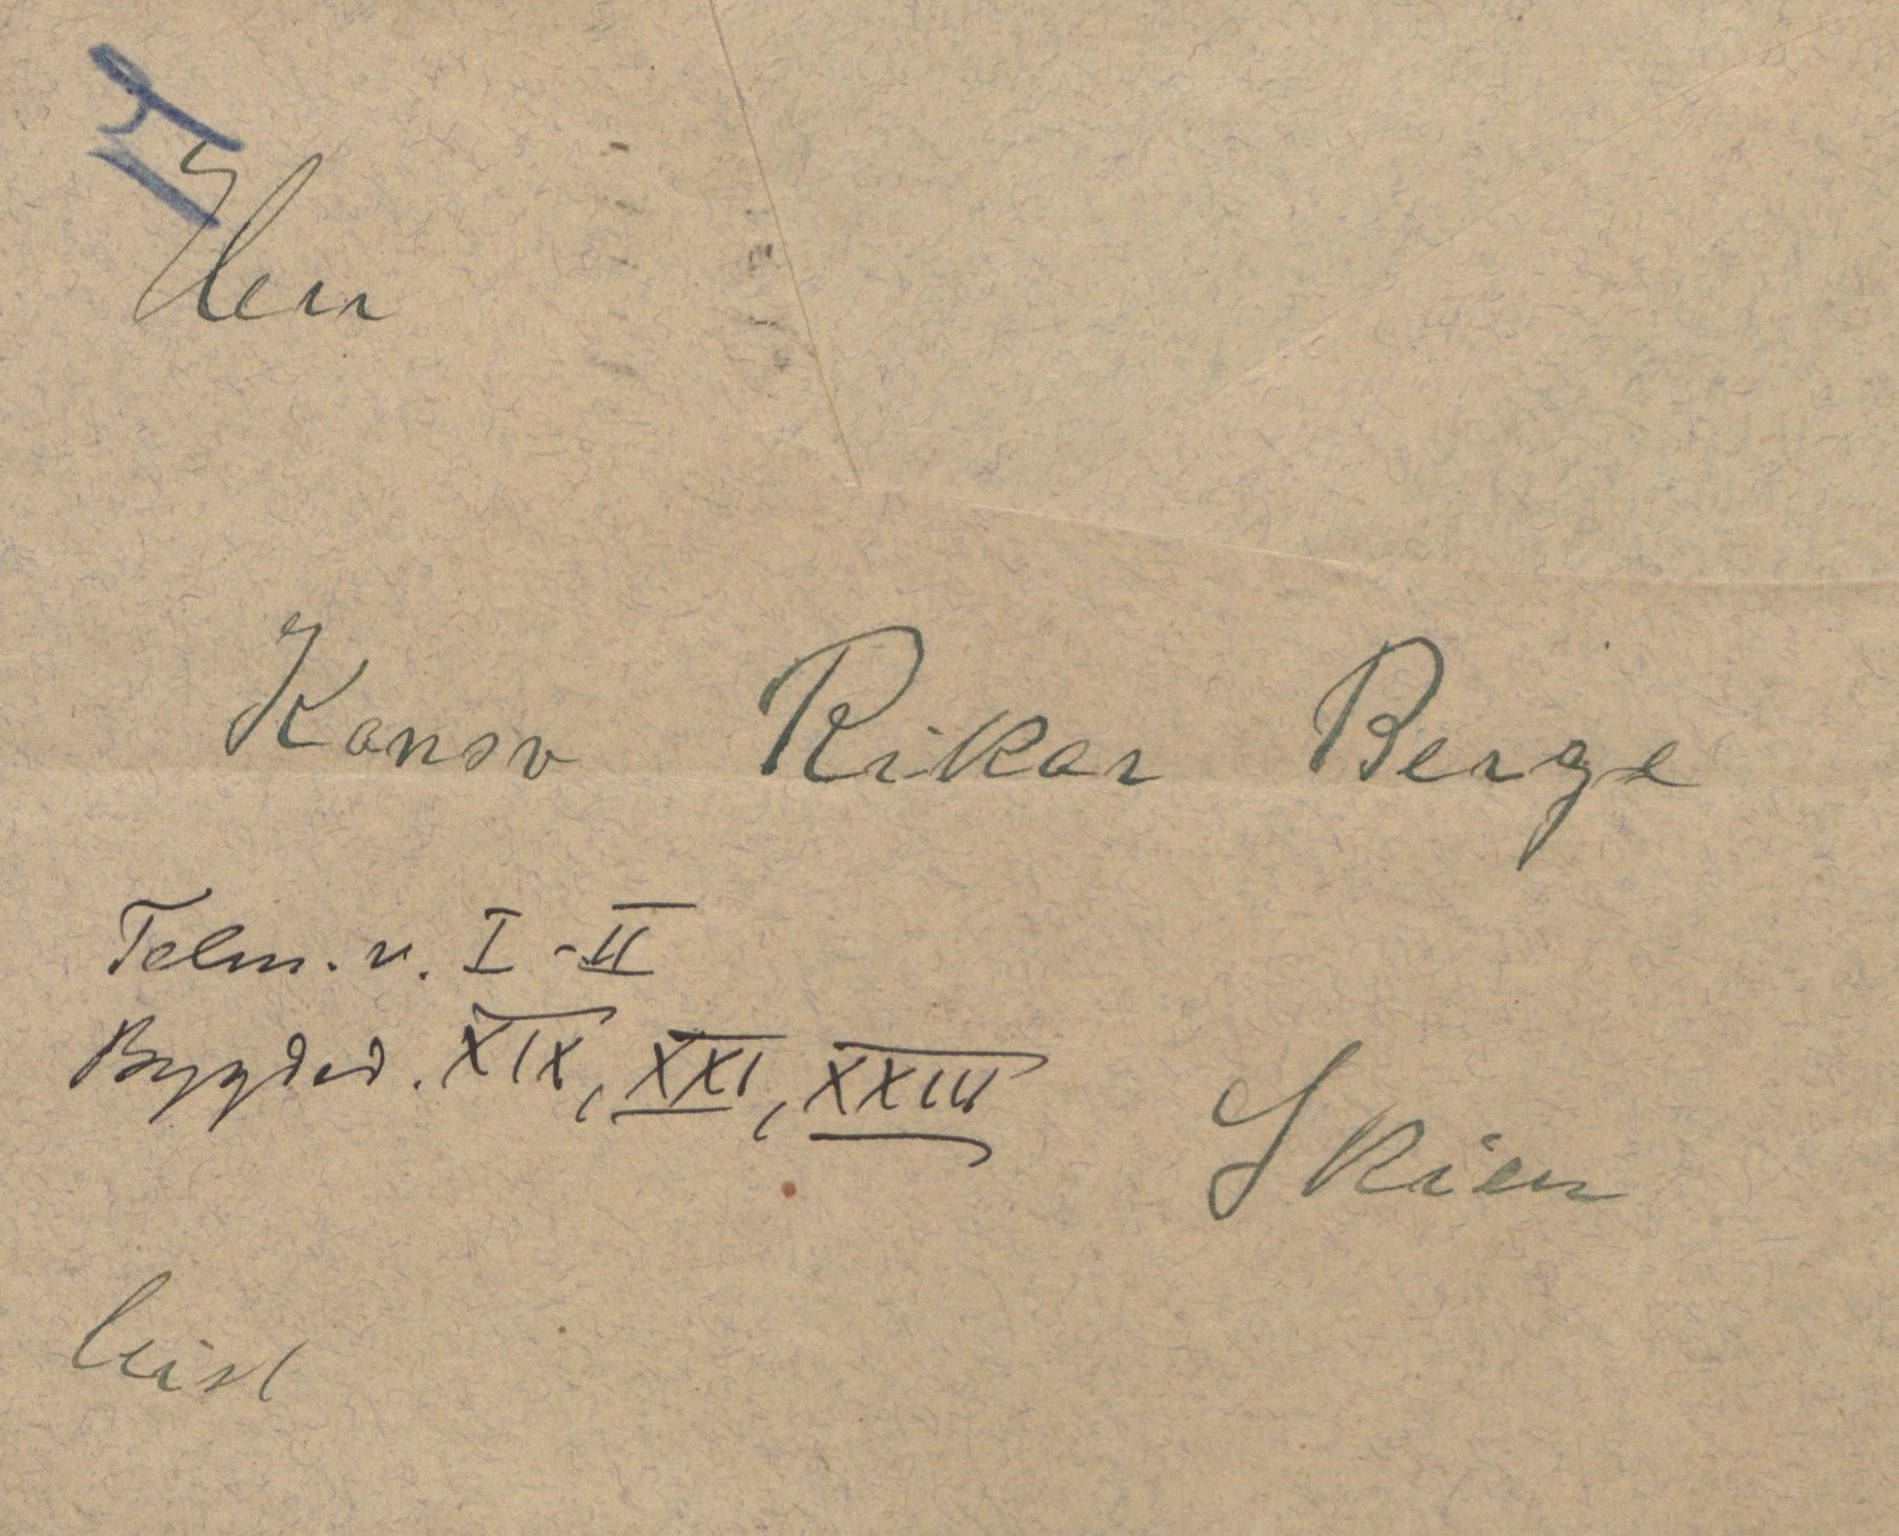 Herr
Konsv Rikar Berge
Telm. v. I - II
Bygded. XIX, XXI, XXIII
Skien